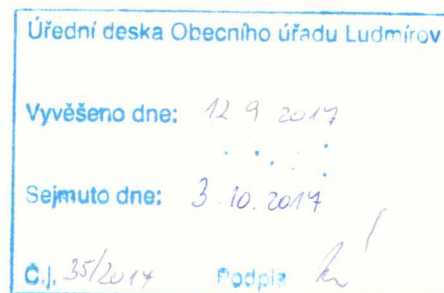 Úřední deska Obecního úřadu Ludmírov
Vyvěšeno dne: 12 9 2017
Sejmuto dne: 3. 10. 2017
Č.j. 35/2017 Podpis